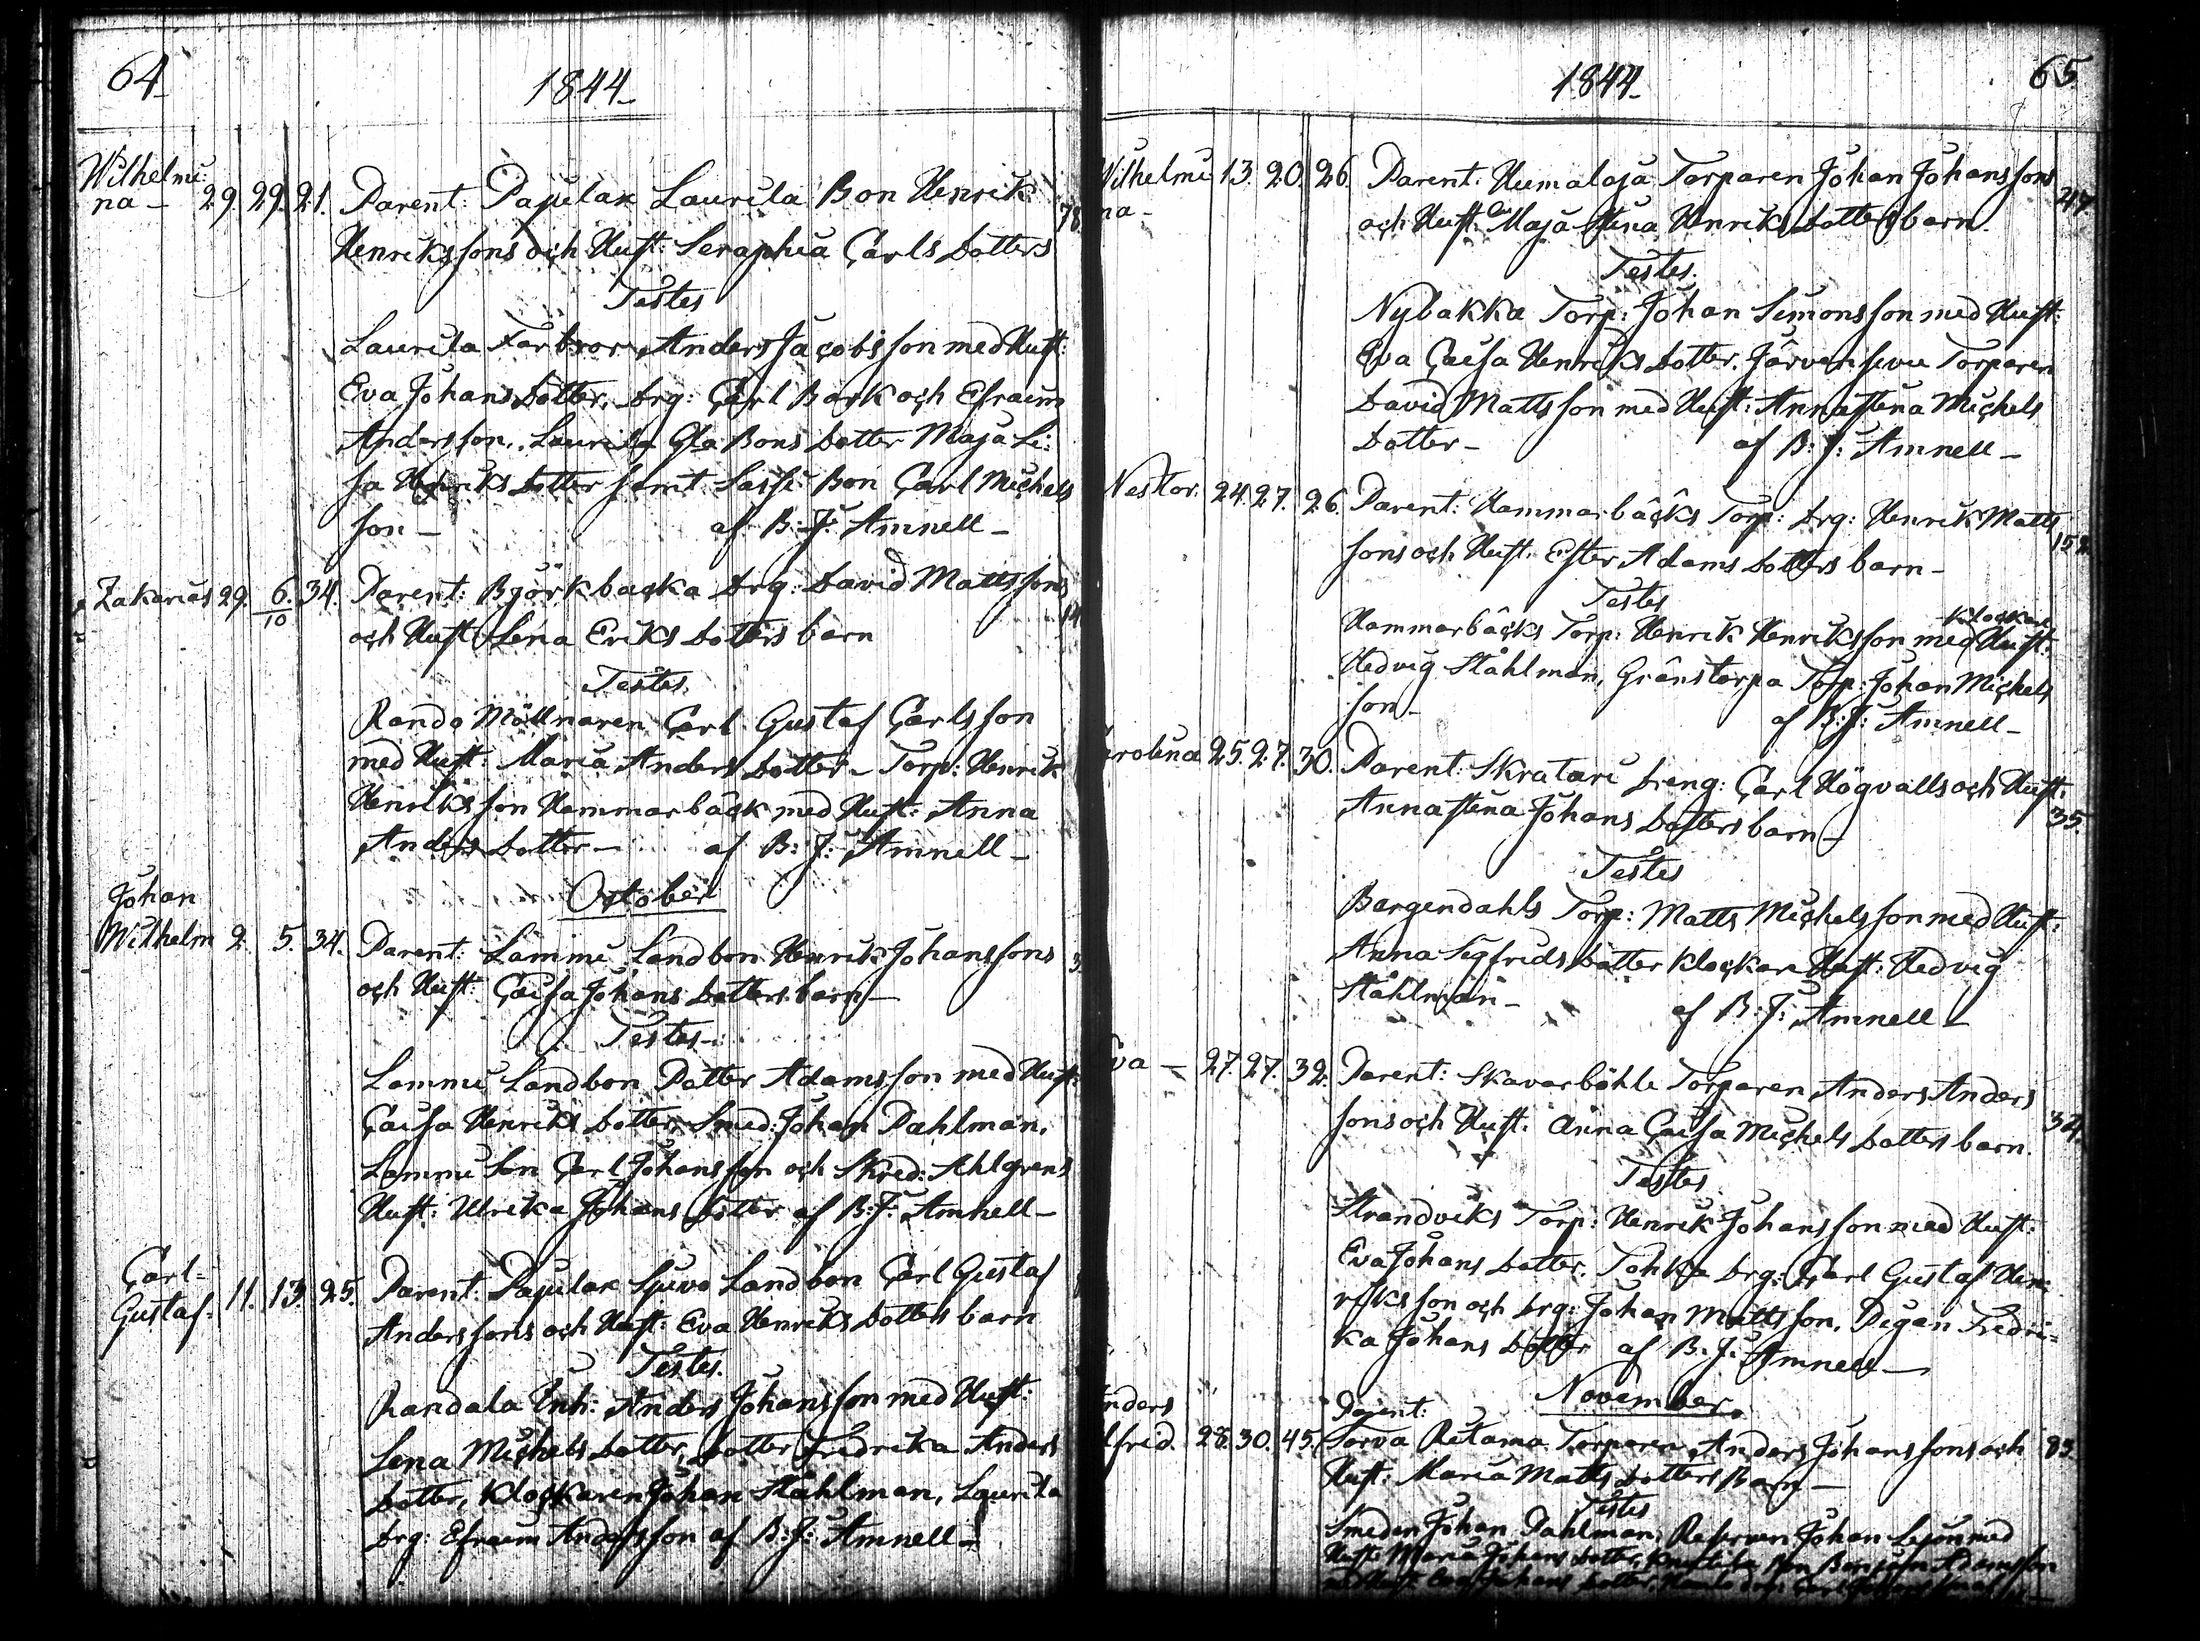 64
1844
Wilhelmi:
na - 29. 29. 21. Parent: Papilax Laurila Bon Henrik 78.
Henrikssons och Hust: Seraphia Carls Dotters
Testes
Laurila Farbror Anders Jacobsson med Hust:
Eva Johans Dotter, Drg: Carl Bark och Efraim
Andersson, Laurila Gla Bons Dotter Maja Li:
sa Henriks Dotter samt Sassi Bon Carl Michels
son - af B: J: Amnell -
Zakarias 29. 6./10 34. Parent: Björkbacka Drg: David Mattssons
och Hust: Lena Eriks Dotters barn
Testes
Rando Möllnaren Carl Gustaf Carlsson
med Hust: Maria Anders Dotter - Torp: Henrik
Henriksson Hammarbäck med Hust: Anna
Anders Dotter - af B: J: Amnell -
October
Johan
Wilhelm 2. 5. 34. Parent: Lammi Landbon Henrik Johanssons
och Hust: Caisa Johans Dotters barn -
Testes -
Lammi Landbon Petter Adamsson med Hust:
Caisa Henriks Dotter, Smed: Johan Dahlman,
Lammi Son Carl Johansson och Skred: Ahlgrens
Hust: Ulrika Johans Dotter af B: J: Amnell -
Carl=
Gustaf. 11. 13. 25. Parent: Papilax Landbon Carl Gustaf
Anderssons och Hust: Eva Henriks Dotters barn
Testes.
Randala Inh: Anders Johansson med Hust:
Lena Michels Dotter, Dotter Fredrika Anders
Dotter, Klockaren Johan Ståhlman, Laurila
Drg: Efraim Andersson af B: J: Amnell -
1844
65.
Wilhelmi 13. 20. 26. Parent: Humaloja Torparen Johan Johanssons 47.
na - och Hust: Maja Stina Henriks Dotters barn
Testes.
Nybakka Torp: Johan Simonsson med Hust:
Eva Caisa Henriks Dotter, Järvensivu Torparen
David Mattsson med Hust: Anna Stina Michels
Dotter - af B: J: Amnell -
Nestor. 24. 27. 26. Parent: Hammarbäcks Torp: Drg: Henrik Matts
sons och Hust: Ester Adams Dotters barn -
Testes
Klockare
Hammarbäcks Torp: Henrik Henriksson med Hust:
Hedvig Ståhlman, Gränstorpa Torp: Johan Michels
son - af B: J: Amnell -
arolina 25. 27. 30. Parent: Skratari Dreng: Carl Högvalls och Hust:
Anna Stina Johans Dotters barn - 35.
Testes
Bergendahls Torp: Matts Michelsson med Hust:
Anna Sigfrids Dotter Klockare Hust: Hedvig
Ståhlman - af B: J: Amnell -
Eva - 27. 27. 32. Parent: Skavarböhle Torparen Anders Anders
sons och Hust: Anna Caisa Michels Dotters barn. 34.
Testes
Strandviks Torp: Henrik Johansson med Hust:
Eva Johans Dotter, Tohka Drg: Carl Gustaf Hen:
riksson och Drg: Johan Mattsson, Pigan Fredri=
ka Johans Dotter af B: J: Amnell -
November.
Parent:
nders
lfrid. 28. 30. 45. Torva Retama Torparen Anders Johanssons och 83.
Hust: Maria Matts Dotters Barn -
Testes
Smeden Johan Dahlman, Reserven Johan Lejon med
Hust: Maria Johans Dotter, Bon Benjam Adamsson